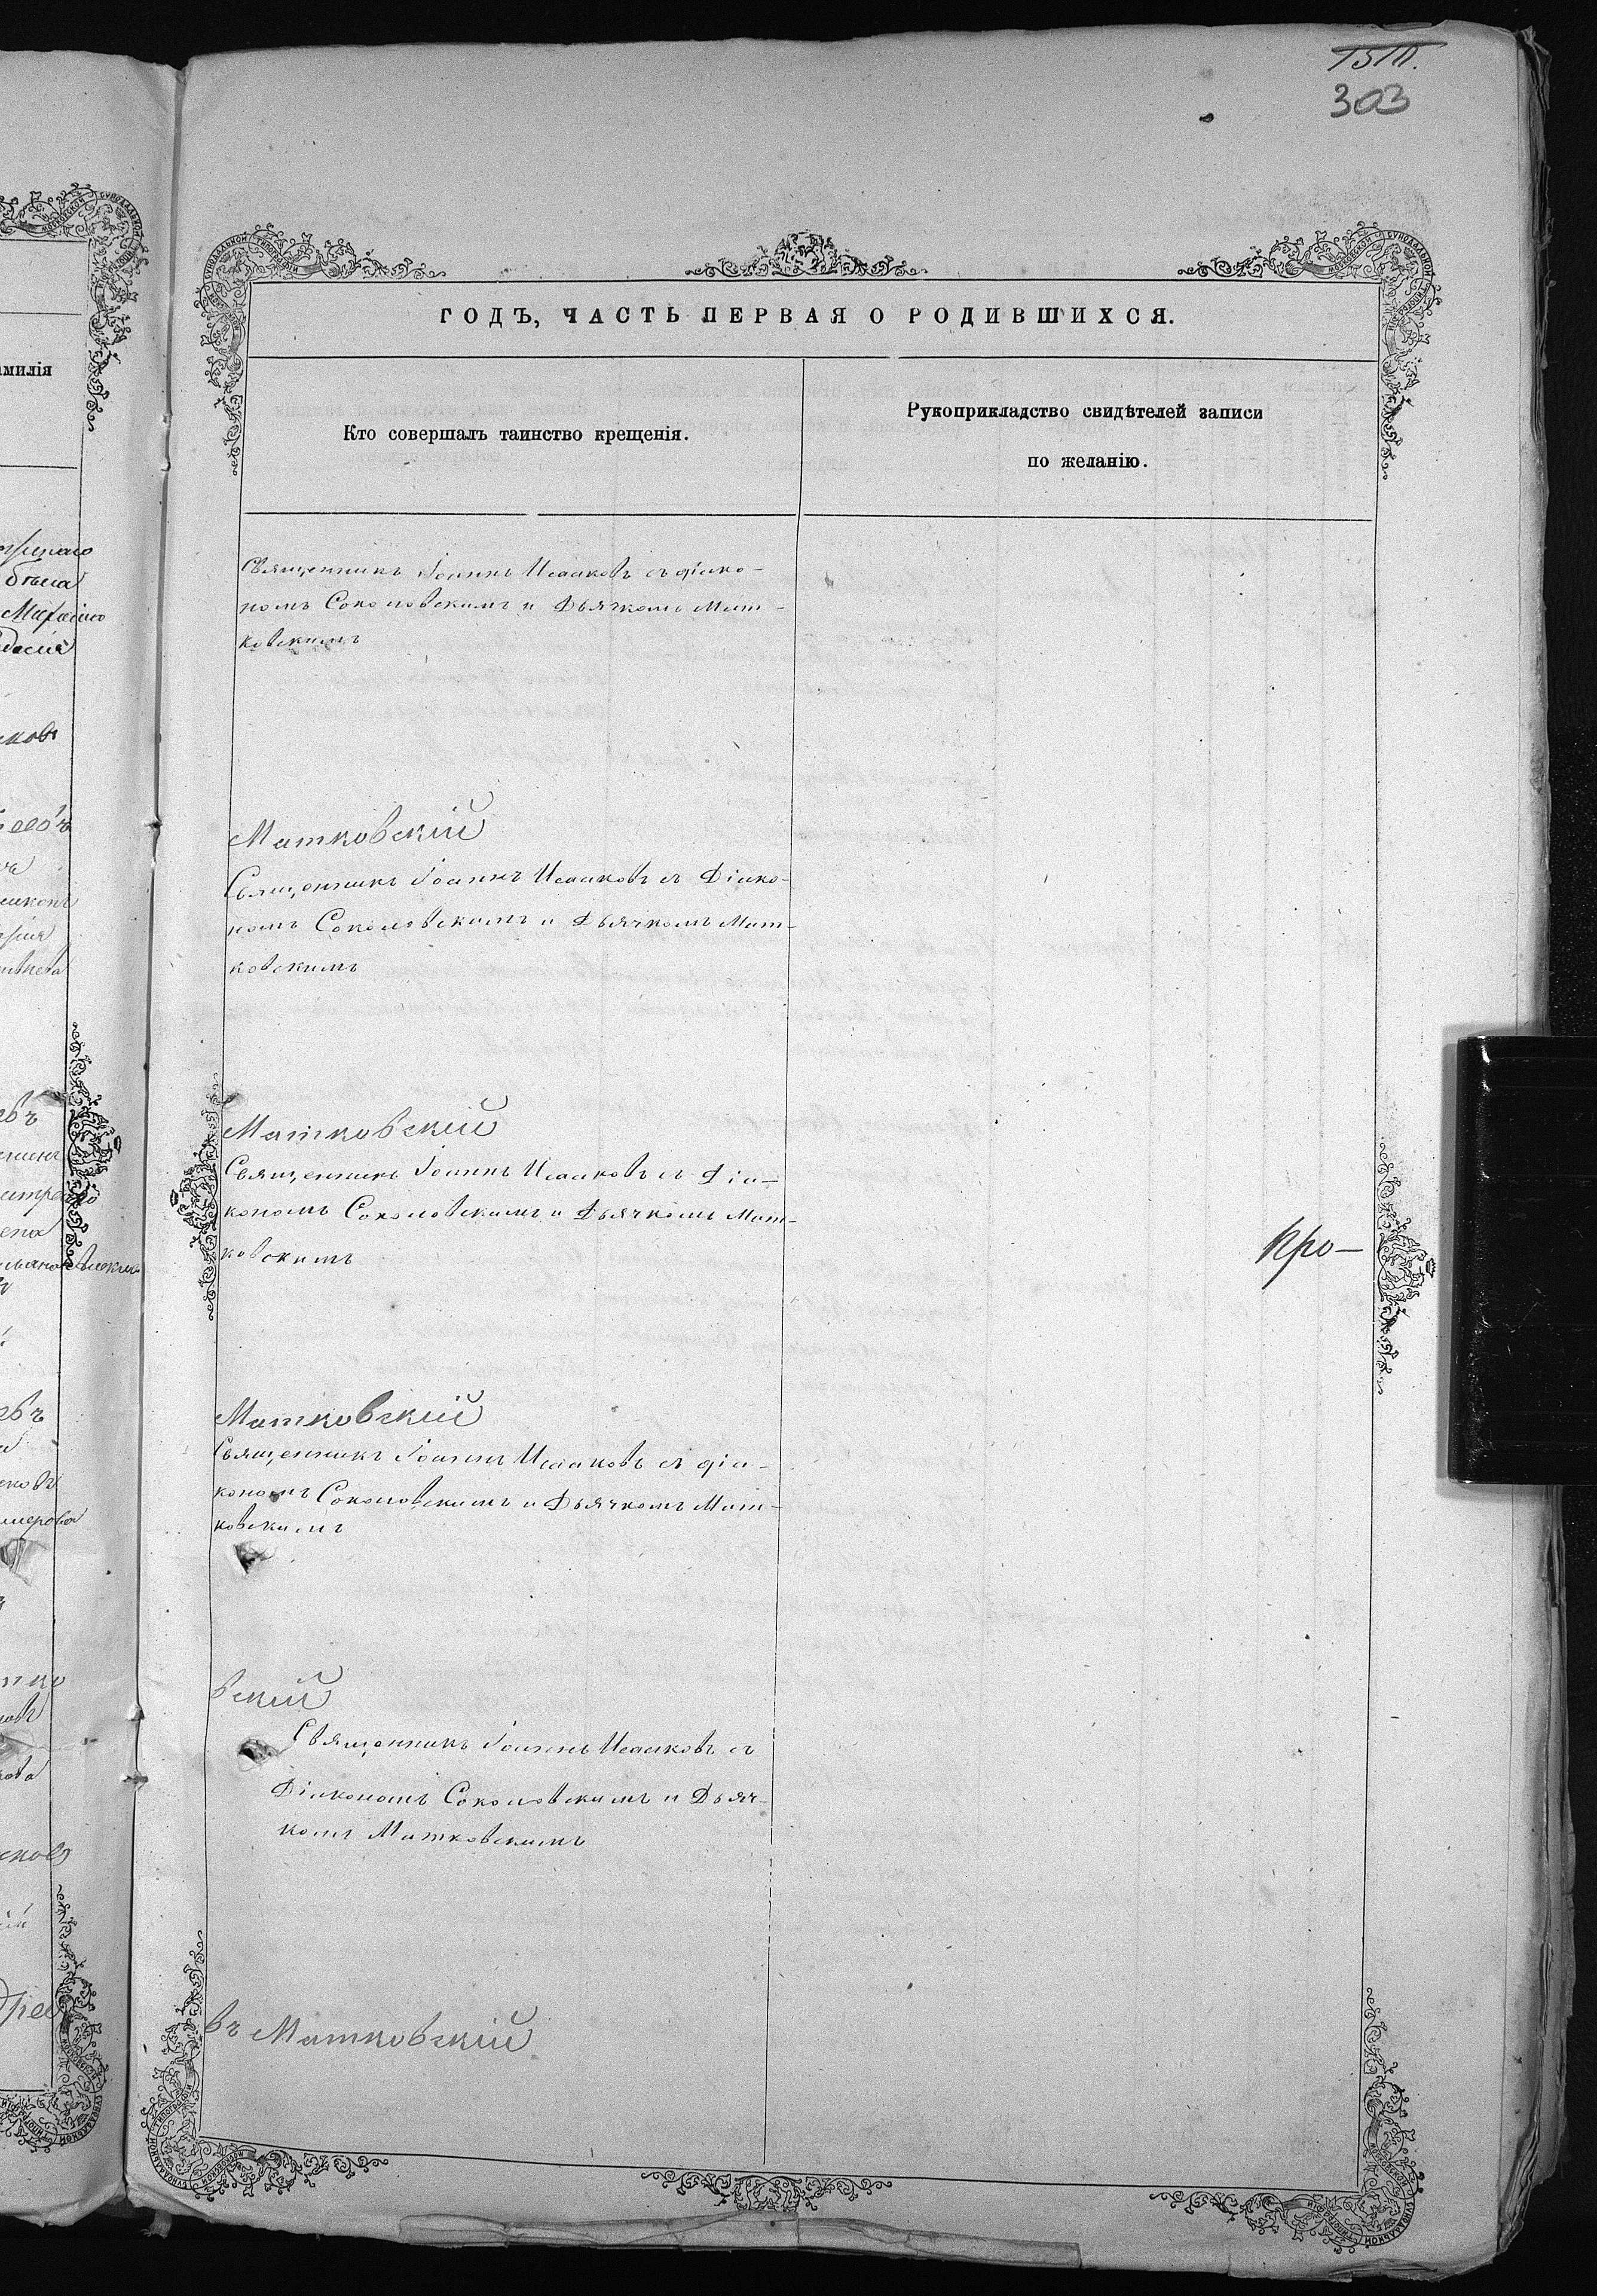 303
ГОДЪ, ЧАСТЬ ПЕРВАЯ О РОДИВШИХСЯ.
Кто совершалъ таинство крещенія.
Рукоприкладство свидѣтелей записи
по желанію.
Священникъ Іоаннъ Исааковъ съ діако-
номъ Соколовскимъ и Дьячкомъ Мат-
ковскимъ
Матковскій
Священникъ Іоаннъ Исааковъ съ Діако-
номъ Соколовскимъ и Дьячкомъ Мат-
ковскимъ
Матковскій
Священникъ Іоаннъ Исааковъ съ Діа-
кономъ Соколовскимъ и Дьячкомъ Мат-
ковскимъ
Кро-
Матковскій
Священникъ Іоаннъ Исааковъ съ діа-
кономъ Соколовскимъ и Дьячкомъ Мат-
ковскимъ
вскій
Священникъ Іоаннъ Исааковъ съ
Діакономъ Соколовскимъ и Дьяч-
комъ Матковскимъ
въ Матковскій